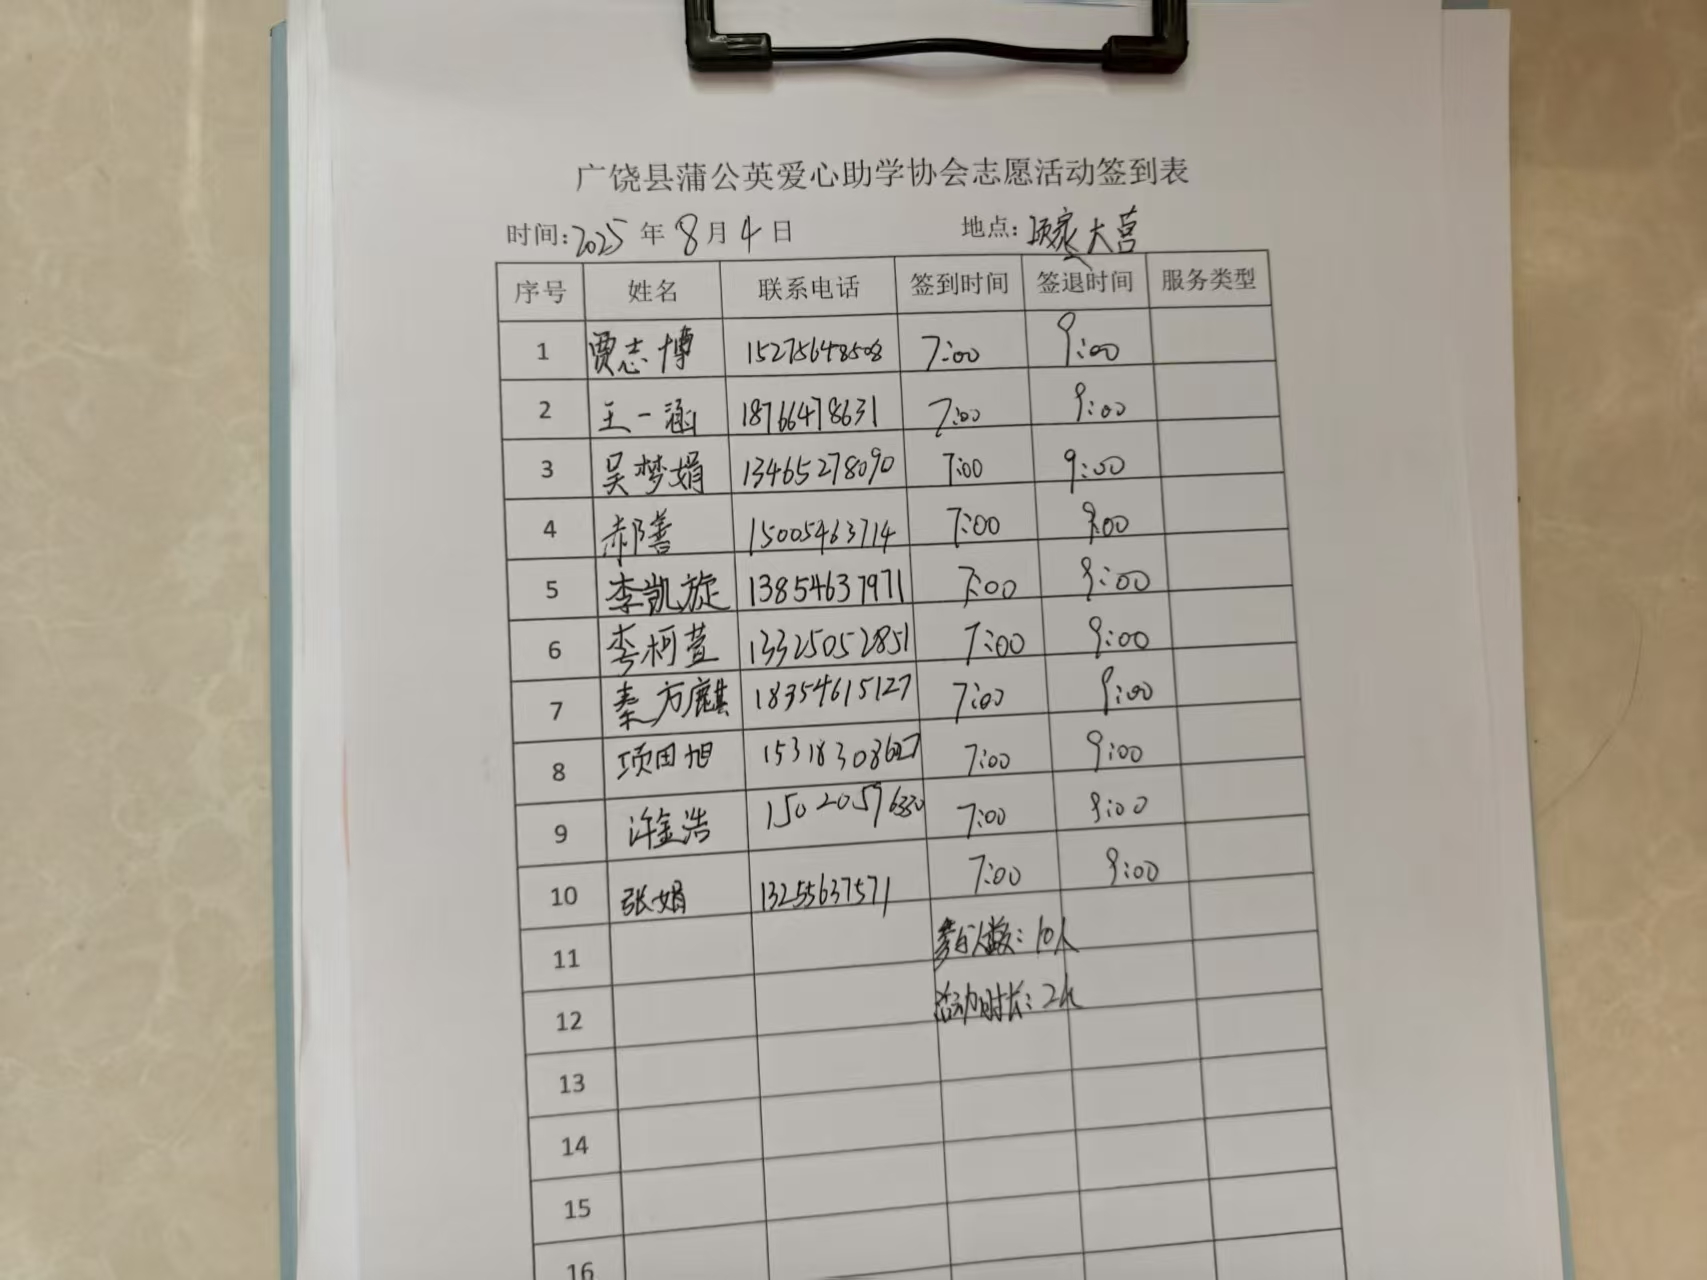 广饶县蒲公英爱心助学协会志愿活动签到表
时间:2025年8月4日 地点:顾家大营
序号 姓名 联系电话 签到时间 签退时间 服务类型
1 贾志博 15275648508 7:00 9:00
2 王一涵 18766478631 7:00 9:00
3 吴梦娟 13465278090 7:00 9:00
4 郝善 15005463714 7:00 9:00
5 李凯旋 13854637971 7:00 9:00
6 李柯萱 13325052851 7:00 9:00
7 秦方麒 18354615127 7:00 9:00
8 项田旭 15318308627 7:00 9:00
9 许金浩 15020576330 7:00 9:00
10 张娟 13255637571 7:00 9:00
11 参与人数:10人
12 活动时长:2h
13
14
15
16